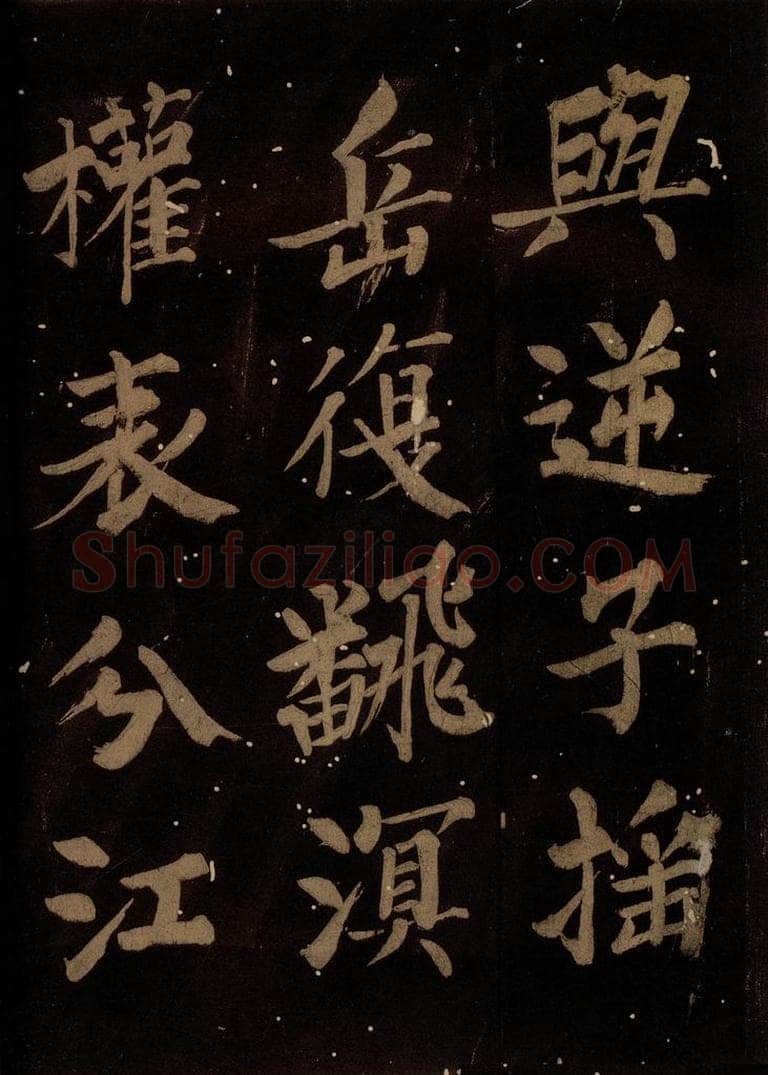 與逆子插
岳復飜溟
權表分江
Shufaziliao.COM